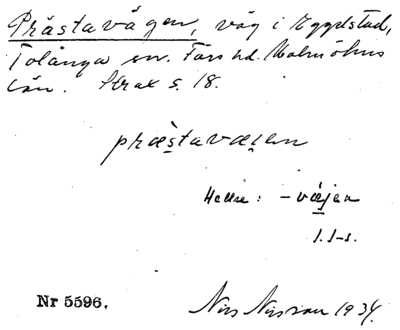 Prästavägen, väg i Eggelstad,
Tolånga sn. Färs hd. Malmöhus
län. Strax s. 18.
præstavæ̨ən
Hellre: -väjen
I. I-s.
Nr 5596.
Nils Nilsson 1934.